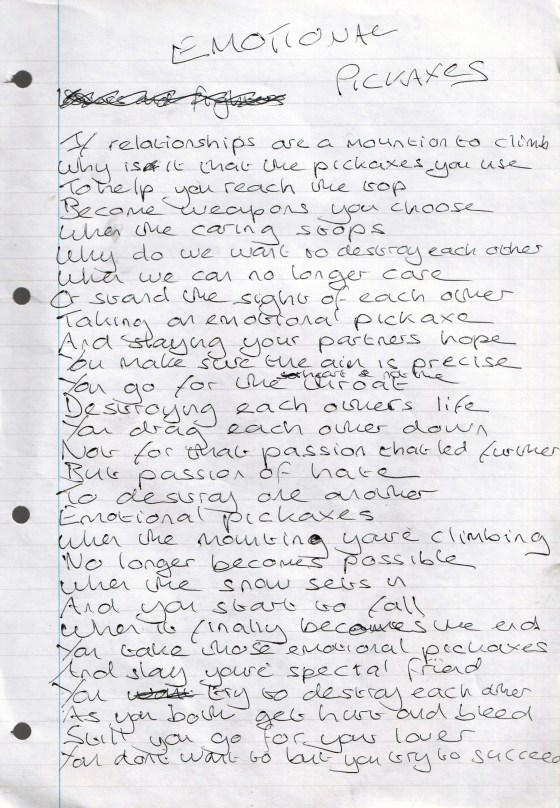 EMOTIONAL
PICKAXES
If relationships are a mountion to climb
Why is it that the pickaxes you use
To help you reach the top
Become weapons you choose
When the caring stops
Why do we want to destroy each other
When we can no longer care
Or stand the sight of each other
Taking an emotional pickaxe
And slaying your partners hope
You make sure the aim is precise
heart & not the
You go for the throat
Destroyng each others life
You drag each other down
Not for that passion that led further
But passion of hate
To destroy one another
Emotional pickaxes
When the mounting you're climbing
No longer becomes possible
When the snow sets in
And you start to fall
When it finally becomes the end
You take those emotional pickaxes
And slay you're special friend
You try to destroy each other
As you both get hurt and bleed
Still you go for your lover
You dont want to but you try to succeed